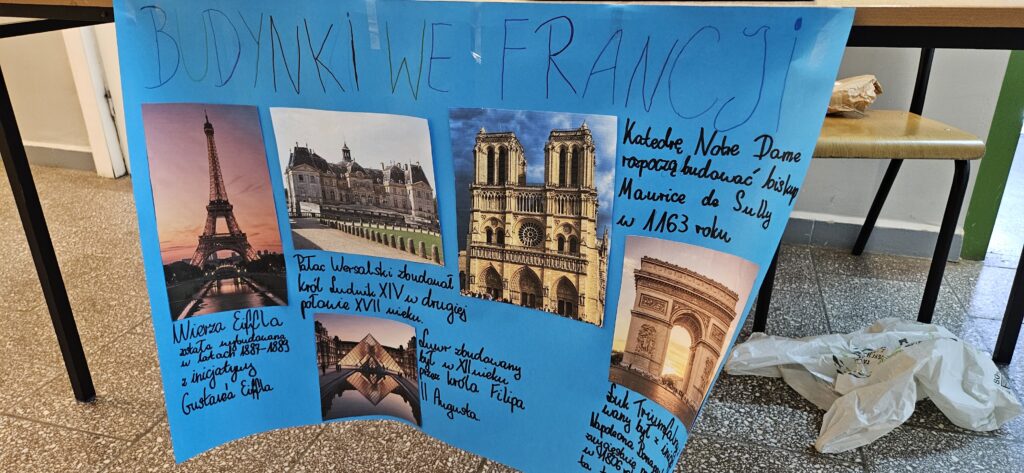 BUDYNKI WE FRANCJI
Wierza Eiffla
zotała wybudowana
w latach 1887-1889
z inicjatywy
Gustawa Eiffla
Pałac Wersalski zbudował
król Ludwik XIV w drugiej
połowie XVII wieku.
Luwr zbudowany
był w XII wieku
przez króla Filipa
II Augusta
Katedrę Notre Dame
rozpoczą budować biskup
Maurice de Sully
w 1163 roku
Łuk Triumfalny
wany był z
Napoleona
w 1806